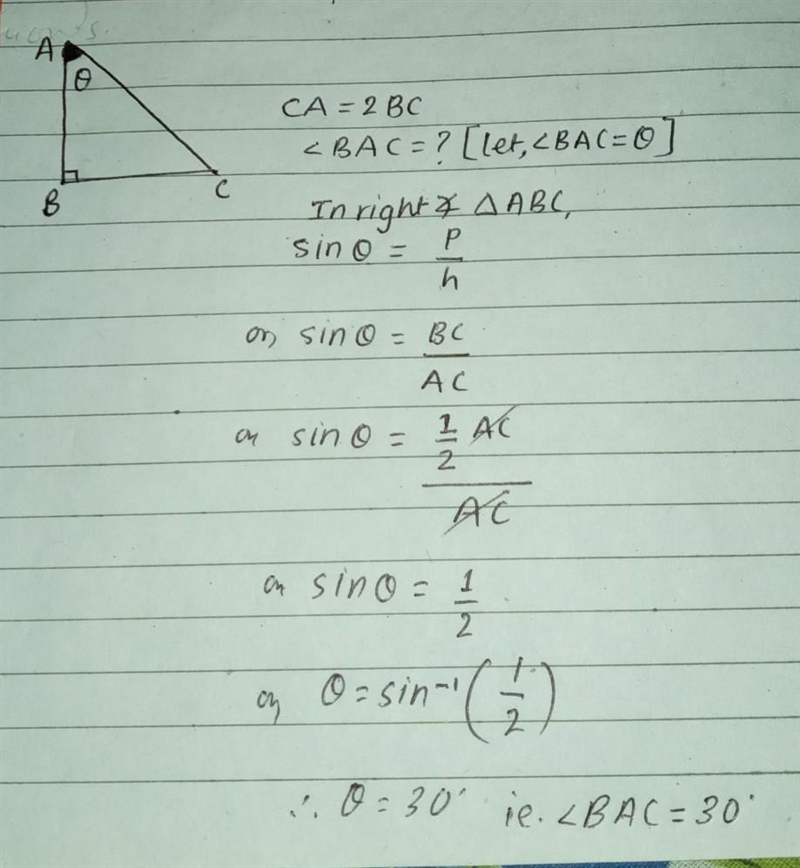 A
θ
B
C
CA = 2BC
∠BAC = ? [let, ∠BAC = θ]
In right ∡ △ABC,
sin θ = p/h
or, sin θ = BC/AC
or sin θ = 1/2 AC/AC
or sin θ = 1/2
or θ = sin⁻¹(1/2)
∴ θ = 30° ie. ∠BAC = 30°